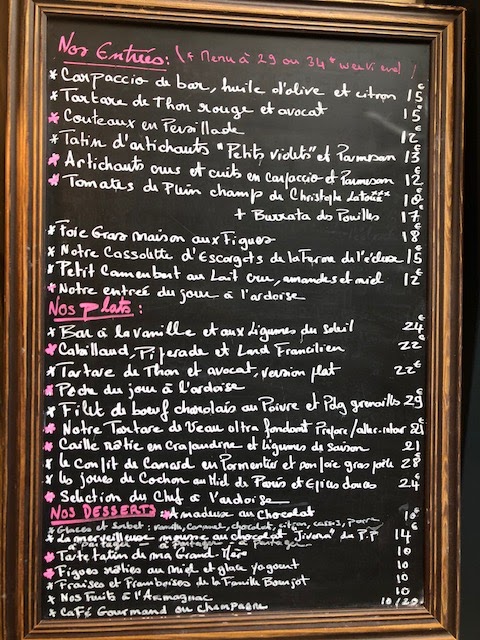 Nos Entrées: (* Menu à 29 ou 34€ week end)
* Carpaccio de bar, huile d'olive et citron 15€
* Tartare de Thon rouge et avocat 15€
* Couteaux en Persillade 12€
* Tatin d'artichauts "Petits violets" et Parmesan 13€
* Artichauts crus et cuits en carpaccio et Parmesan 12€
* Tomates de Plein champ de Christophe Latour*** 10€
+ Burrata des Pouilles 17€
* Foie Gras maison aux Figues 18€
* Notre Cassolette d'Escargots de la Ferme de l'écluse 15€
* Petit Camembert au Lait cru, amandes et miel 12€
* Notre entrée du jour à l'ardoise
Nos plats:
* Bar à la vanille et aux légumes du soleil 24€
* Cabillaud, Piperade et Lard Francilien 22€
* Tartare de Thon et avocat, version plat 22€
* Pêche du jour à l'ardoise
* Filet de bœuf charolais au Poivre et Pdg grenailles 29€
* Notre Tartare de Veau ultra fondant Préparé/aller-retour 21€
* Caille rôtie en Crapaudine et légumes de saison 21
* Le Confit de Canard en Parmentier et son foie gras poêlé 28€
* Les joues de Cochon au Miel de Paris et Epices douces 24€
* Sélection du Chef à l'ardoise
NOS DESSERTS * Amadeux au Chocolat 10€
* Glaces et Sorbet: vanille, caramel, chocolat, citron, cassis, poire €
* La merveilleuse mousse au chocolat Jivara de P.P 14
à Partager à Partager à Partager
* Tarte tatin de ma Grand-Mère 10
* Figues rôties au Miel et glace yaourt 10
* Fraises et Framboises de la Famille 10
* Nos Fruits à l'Armagnac 10
* Café Gourmand ou Champagne 10/20